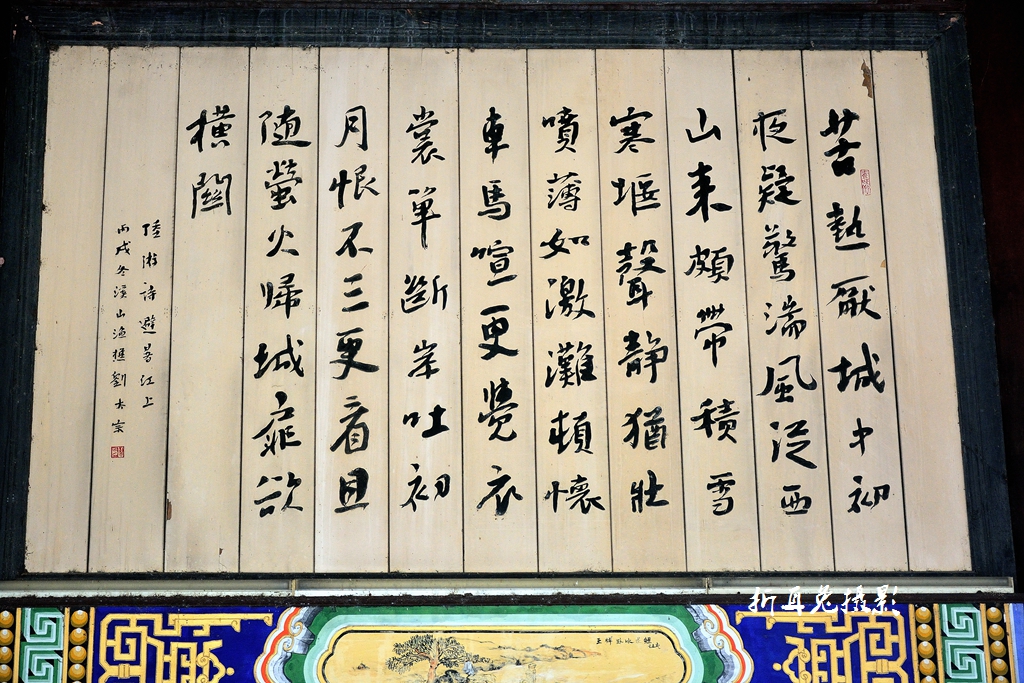 苦熱厭城中初
夜疑驚湍風從西
山来頗帶積雪
寒堰聲静猶壯
噴薄如激灘頓懷
車馬喧更覺衣
裳單斷岸吐初
月恨不三更看且
随螢火歸城扉欲
横闗
陸游诗避暑江上
丙戌冬山渔樵劉大宗
折耳兔攝影